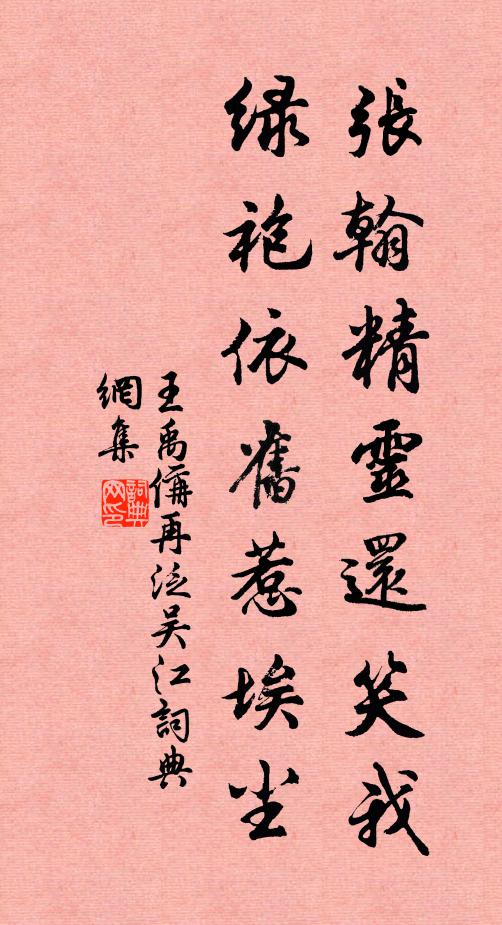 張翰精靈還笑我
綠袍依舊惹埃尘
王禹偁再泛吴江詞典
網集
詞典
网印